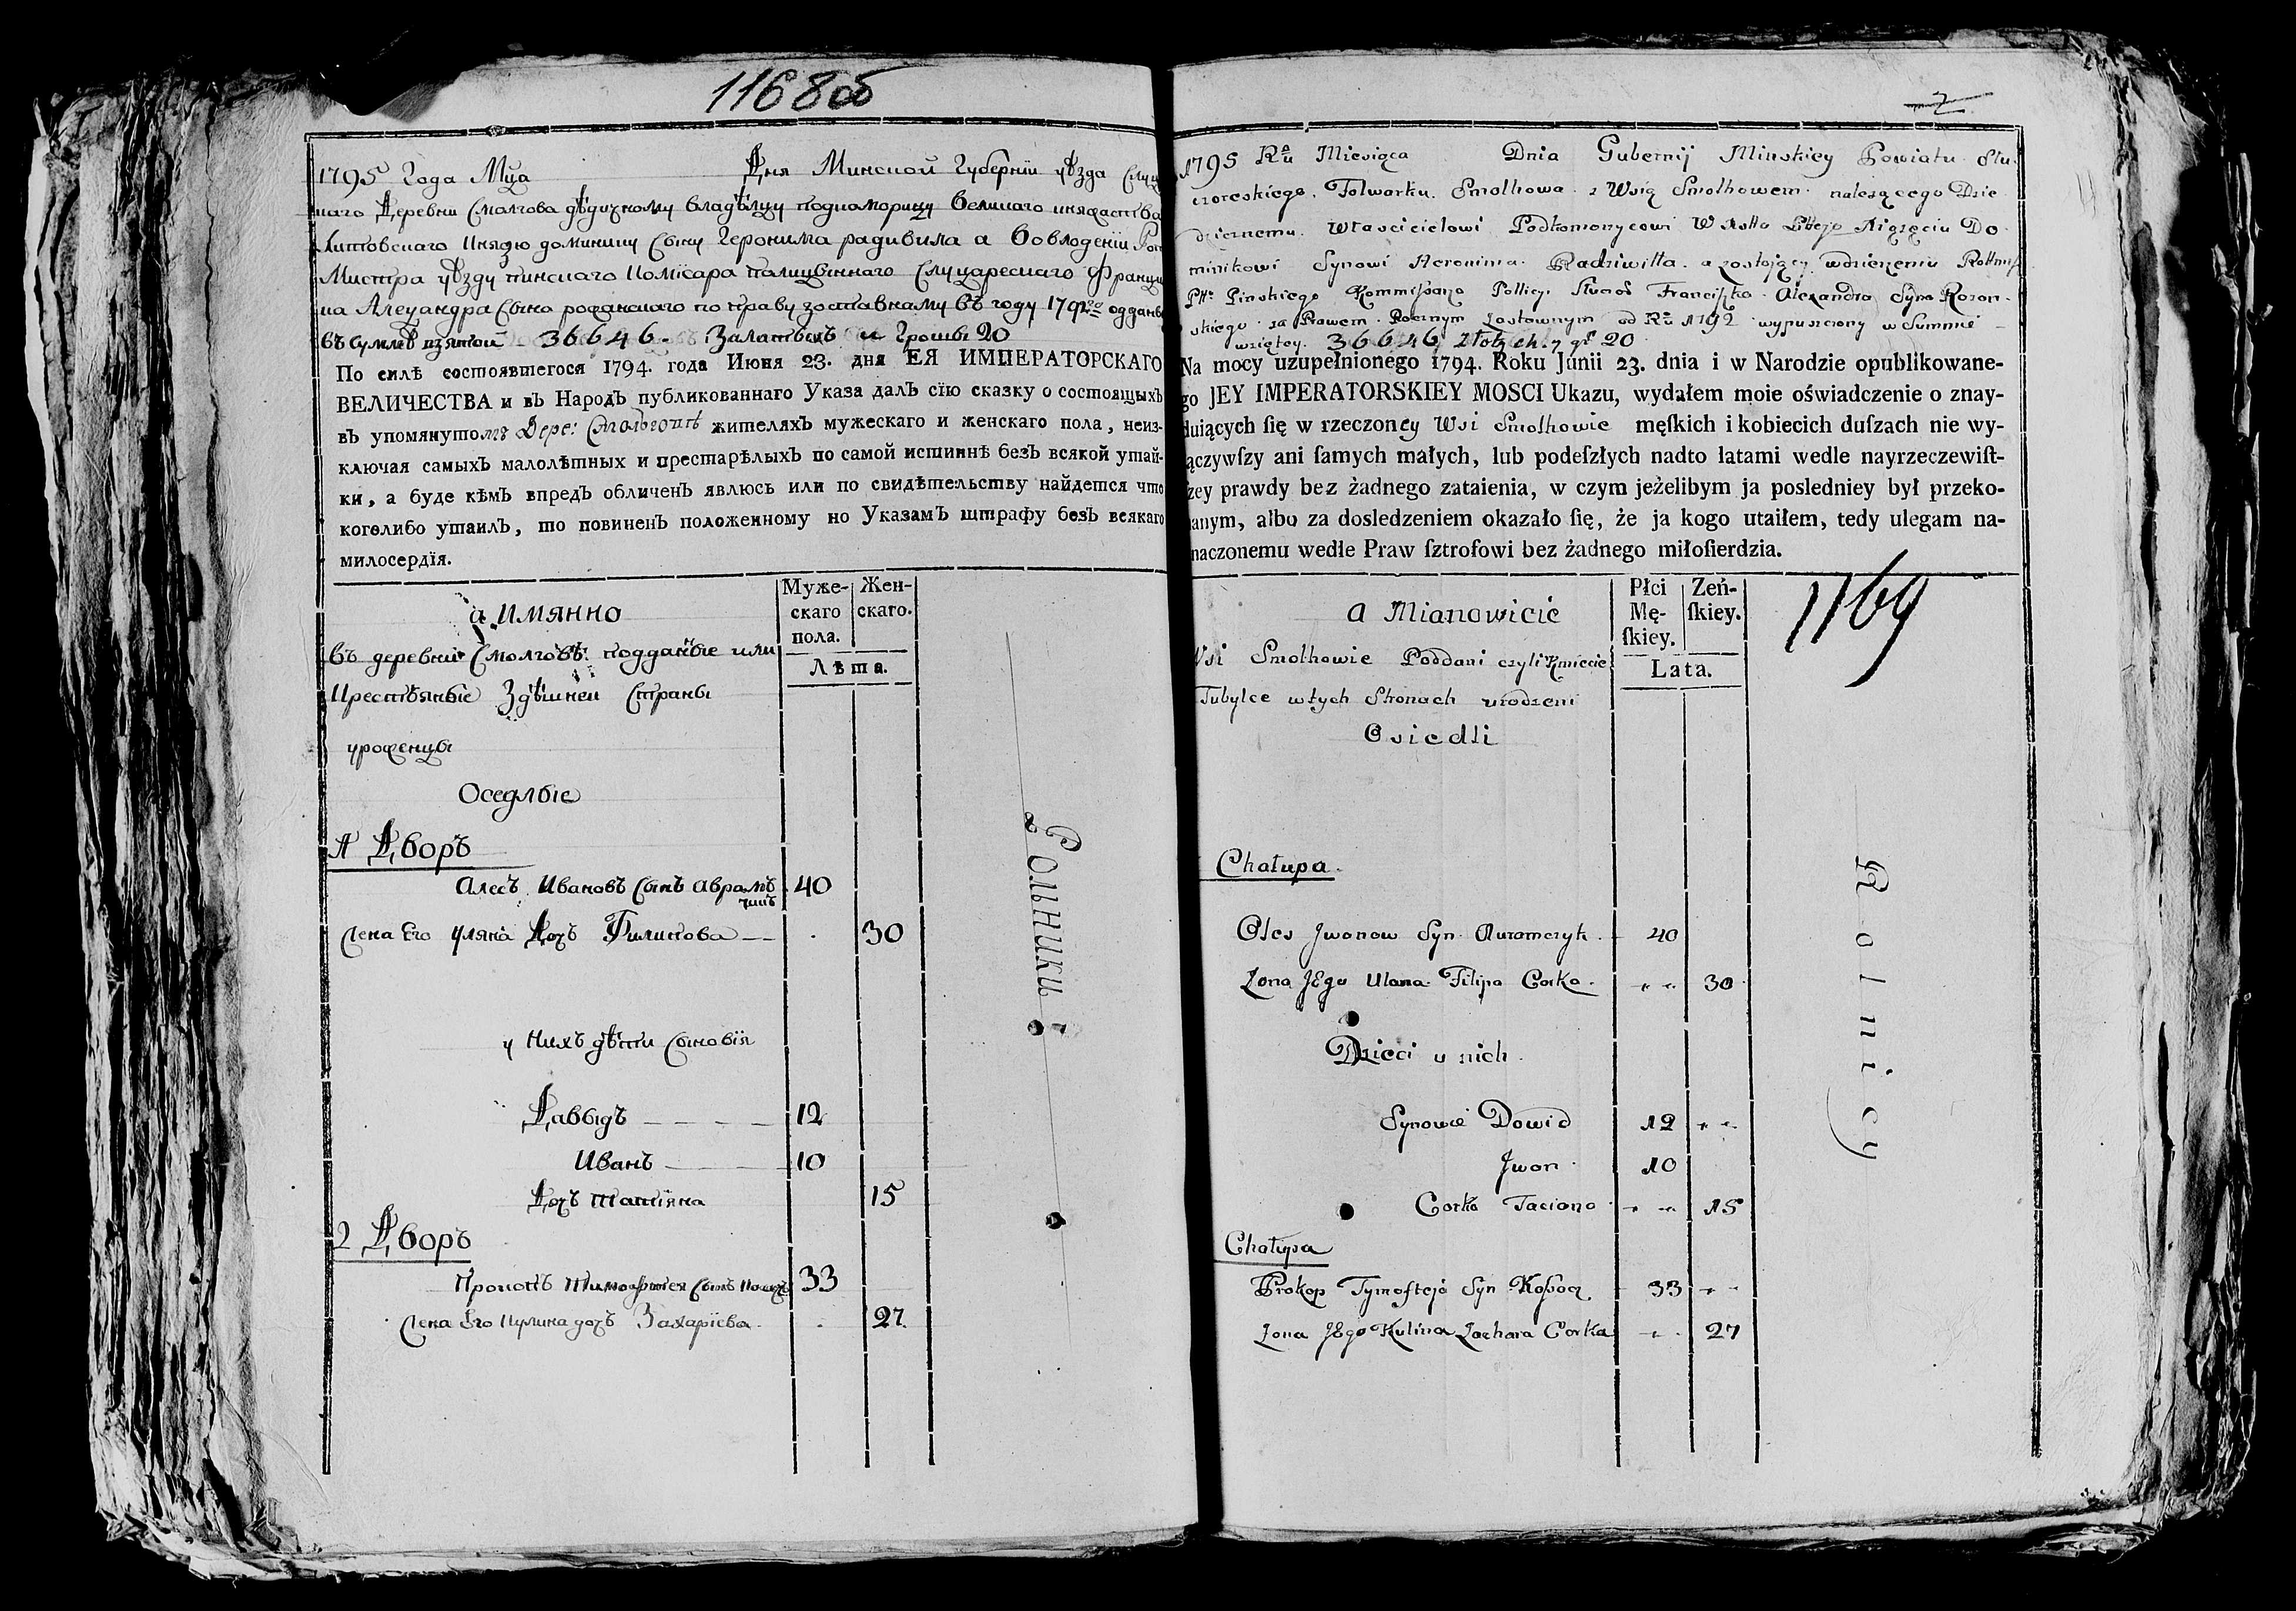 1168об
1795 Года Мца Дня Минской Губернїи уѣзда Слуц
каго Деревни Смолгова дѣдичному владѣлцу подкоморицу великаго княжества
Литовскаго князю доминику сыну Геронима радивила а во влодении Рот
Мистра уѣзду пинскаго комісара полициннаго Слуцорескаго Франци
ка Александра Сына рожанскаго по праву заставнаму въ году 1792го одданы
въ суммѣ взятой 36646 Залатыхъ и Гроши 20
По силѣ состоявшегося 1794. года Июня 23. дня ЕЯ ИМПЕРАТОРСКАГО
ВЕЛИЧЕСТВА и въ Народъ публикованнаго Указа далъ сїю сказку о состоящыхъ
въ упомянутомъ Дере: Смолговѣ жителяхъ мужескаго и женскаго пола, неиз-
ключая самыхъ малолѣтныхъ и престарѣлыхъ по самой истиннѣ безъ всякой утай-
ки, а буде кѣмъ впредъ обличенъ явлюсь или по свидѣтельству найдется что
коголибо утаилъ, то повиненъ положенному по Указамъ штрафу безъ всякаго
милосердїя.
а имянно
Муже-
скаго
пола.
Жен-
скаго.
Лѣта.
въ деревни Смолговѣ подданые или
Крестьяные Здѣшней Страны
уроженцы
Оседлые
1 Дворъ
Алесъ Ивановъ сынъ Аврамъ
чикъ 40
Жена Его Уляна Дочъ Филипова 30
у нихъ дѣти Сыновія
Давыдъ 12
Иванъ 10
Дочъ татіяна 15
2 Дворъ
Прокопъ Тимофтея Сынъ 33
Жена Его Кулина дочъ Захаріева 27
Рольники
2
1795 Ru Miesiąca Dnia Gubernij Minskiey Powiatu Slu
czoreskiego. Folwarku. Smolhowa. z Wsią Smolhowem. nalezącego Dzie
dzicznemu. Wlascicielowi Podkomorycowi W Xstta Littgo Xiązęciu Do
minikowi Synowi Heronima. Radziwiłła. a zostojący wdzierzeniu Rottmis
Ptt Pinskiego Kommissarza Pollicy. Sluczoł Franciszka Alexandra Syna Rozon.
skiego. za Prawem. Rocznym Zastawnym od Ru 1792 wypuszczony w Summie
wziętey. 36646 Złotych. y gr 20
Na mocy uzupełnionego 1794. Roku Junii 23. dnia i w Narodzie opublikowane-
go JEY IMPERATORSKIEY MOSCI Ukazu, wydałem moie oświadczenie o znay-
duiących ſię w rzeczoney Wsi Smolhowie męſkich i kobiecich duſzach nie wy-
ączywſzy ani ſamych małych, lub podeſzłych nadto latami wedle nayrzeczewiſt-
zey prawdy bez żadnego zataienia, w czym jeżelibym ja posledniey był przeko-
anym, albo za dosledzeniem okazało ſię, że ja kogo utaiłem, tedy ulegam na-
naczonemu wedle Praw ſztrofowi bez żadnego miłoſierdzia.
a Mianowicie
Płci
Mę-
ſkiey.
Zeń-
ſkiey.
Lata.
1169
Wsi Smolhowie Poddani czyli Kmiecie
Tubylce wtych Stronach urodzeni
Osiedli
Chałupa.
Oles Jwanow Syn Auramczyk. 40
Zona JEgo Ulana Filipa Corka. 30
Dzieci u nich.
Synowie Dowid 12
Jwan. 10
Corka Taciana 15
Chałupa
Prokop Tymofteja Syn Kossacz 33
Zona JEgo Kulina Zachara Corka 27
Rolnicy